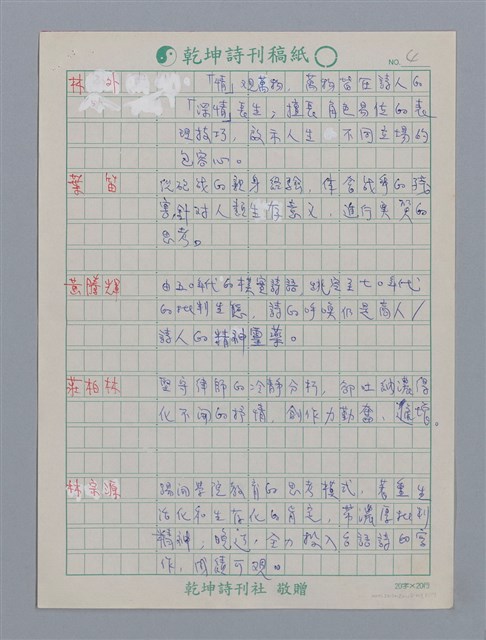 乾坤詩刊稿紙
NO. 4
林 外 「情」觀萬物,萬物皆在詩人的
「深情」長生,擅長角色易位的表
現技巧,啟示人生 不同立場的
包容心。
葉 笛 從砲戰的親身經驗,體會戰爭的殘
害,針對人類生存意義,進行實質的
思考。
黃騰輝 由五〇年代的樸實詩語,跳空至七〇年代
的批判生態,詩的呼喚仍是商人/
詩人的精神靈藥。
莊柏林 堅守律師的冷靜分析,卻吐納濃厚
化不開的抒情,創作力勤奮,
林宗源 擺開學院教育的思考模式,著重生
活化和生存化的自主,帶濃厚批判
精神,晚近,全力投入台語詩的寫
作,成績可觀。
乾坤詩刊社 敬贈
20字×20行